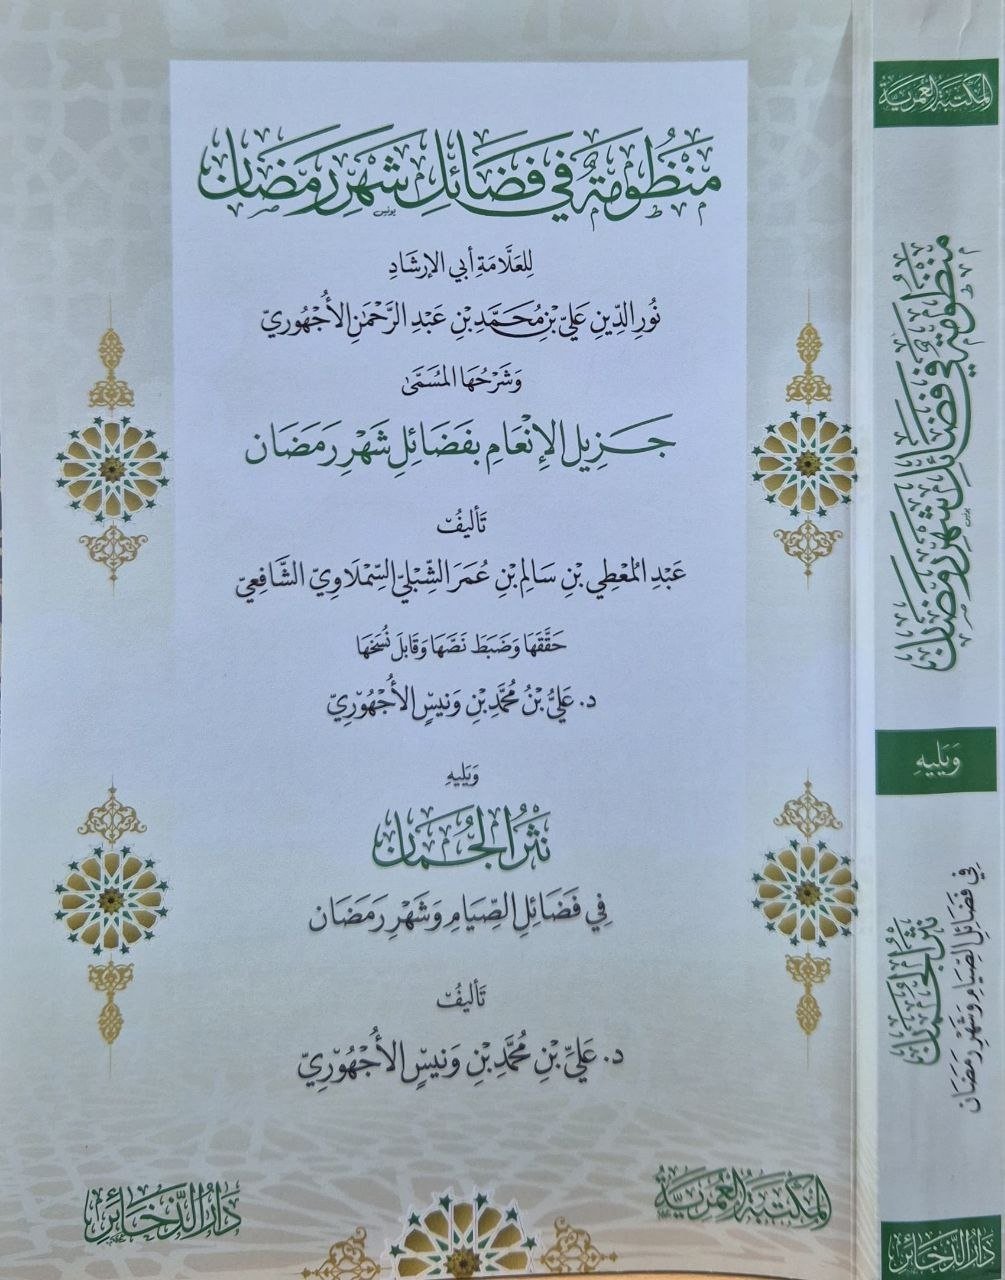 مَنْظُومَةٌ فِي فَضَائِلِ شَهْرِ رَمَضَان
لِلعَلَّامَةِ أَبي الإرشَادِ
نُورِ الدِّينِ عَلِيِّ بْنِ مُحَمَّدِ بْنِ عَبْدِ الرَّحْمَنِ الأُجْهُورِيّ
وَشَرْحُهَا المُسَمَّى
جَزِيل الإِنْعَام بفَضَائِلِ شَهْرِ رَمَضَان
تَأليفُ
عَبْدِ المُعْطِي بْنِ سَالِمِ بْنِ عُمَرَ الشِّبْلِيّ السِّمْلَاوِيّ الشَّافِعِيّ
حَقَّقَهَا وَضَبَطَ نَصَّهَا وَقَابَلَ نُسَخَهَا
د. عَلِيُّ بْنُ مُحَمَّدِ بْنِ وَنِيسٍ الأُجْهُورِيّ
وَيَلِيهِ
نَثْرُ الجُمَان
فِي فَضَائِلِ الصِّيَامِ وَشَهْرِ رَمَضَان
تَأليفُ
د. عَلِيِّ بْنِ مُحَمَّدِ بْنِ وَنِيسٍ الأُجْهُورِيّ
المَكْتَبَةُ العُمَرِيَّة
دَارُ الذَّخَائِر
المَكْتَبَةُ العُمَرِيَّة
مَنْظُومَةٌ فِي فَضَائِلِ شَهْرِ رَمَضَان
وَيَلِيهِ
نَثْرُ الجُمَان
فِي فَضَائِلِ الصِّيَامِ وَشَهْرِ رَمَضَان
دَارُ الذَّخَائِر